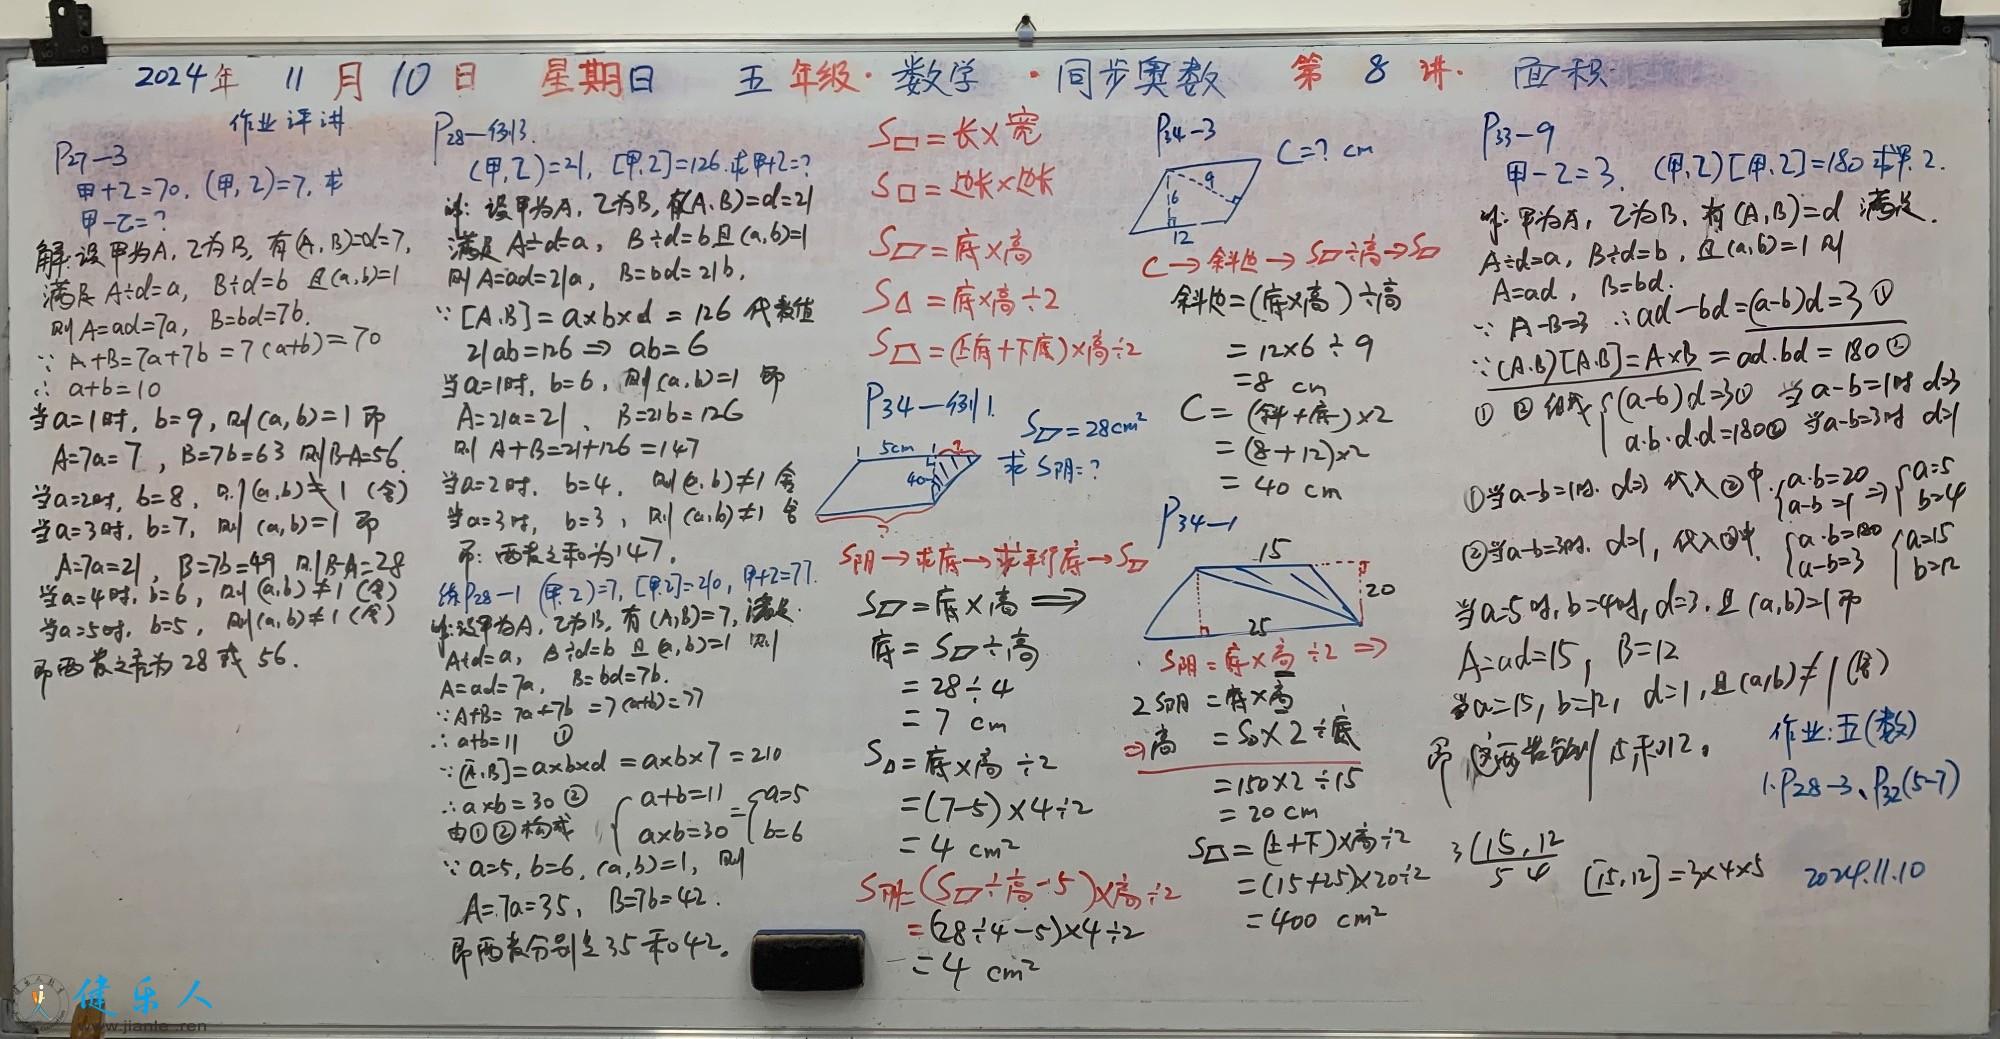 2024年 11月10日 星期日 五年级·数学·同步奥数 第8讲· 面积
作业评讲
P27-3
甲+乙=70, (甲,乙)=7, 求
甲-乙=?
解: 设甲为A, 乙为B, 有(A,B)=d=7,
满足 A÷d=a, B÷d=b 且(a,b)=1
则 A=ad=7a, B=bd=7b.
∵ A+B=7a+7b=7(a+b)=70
∴ a+b=10
当a=1时, b=9, 则(a,b)=1 即
A=7a=7, B=7b=63 则B-A=56.
当a=2时, b=8, 则(a,b)≠1 (舍)
当a=3时, b=7, 则(a,b)=1 即
A=7a=21, B=7b=49 则B-A=28
当a=4时, b=6, 则(a,b)≠1 (舍)
当a=5时, b=5, 则(a,b)≠1 (舍)
即两数之差为 28 或 56.
P28-例3.
(甲,乙)=21, [甲,乙]=126.求甲+乙=?
设甲为A, 乙为B, 有(A,B)=d=21
满足 A÷d=a, B÷d=b且(a,b)=1
则 A=ad=21a, B=bd=21b.
∵ [A,B]=a×b×d=126 代数值
21ab=126 ⇒ ab=6
当a=1时, b=6, 则(a,b)=1 即
A=21a=21, B=21b=126
则 A+B=21+126=147
当a=2时, b=4, 则(a,b)≠1 舍
当a=3时, b=3, 则(a,b)≠1 舍
即: 两数之和为147.
练P28-1 (甲,乙)=7, [甲,乙]=210, 甲+乙=77.
设甲为A, 乙为B, 有(A,B)=7, 满足
A÷d=a, B÷d=b 且(a,b)=1 则
A=ad=7a, B=bd=7b.
∵A+B=7a+7b=7(a+b)=77
∴a+b=11 ①
∵[A,B]=a×b×d=a×b×7=210
∴a×b=30 ②
由①②构成 { a+b=11 a×b=30 = { a=5 b=6
∵a=5, b=6, (a,b)=1, 则
A=7a=35, B=7b=42.
即两数分别是35和42。
S▭=长×宽
S□=边长×边长
S▱=底×高
S△=底×高÷2
S⏢=(上底+下底)×高÷2
P34-例1.
S▱=28cm²
求S阴=?
5cm ?
4cm
?
S阴→求底→求平行底→S▱
S▱=底×高 ⇒
底=S▱÷高
=28÷4
=7 cm
S△=底×高÷2
=(7-5)×4÷2
=4 cm²
S阴=(S▱÷高-5)×高÷2
=(28÷4-5)×4÷2
=4 cm²
P34-3
C=? cm
9
6
12
C→斜边→S▱÷高→S▱
斜边=(底×高)÷高
=12×6÷9
=8 cm
C=(斜+底)×2
=(8+12)×2
=40 cm
P34-1
15
20
25
S阴=底×高÷2 ⇒
2S阴=底×高
⇒高 =S△×2÷底
=150×2÷15
=20 cm
S⏢=(上+下)×高÷2
=(15+25)×20÷2
=400 cm²
P33-9
甲-乙=3, (甲,乙)[甲,乙]=180 求甲.乙.
甲为A, 乙为B, 有(A,B)=d 满足.
A÷d=a, B÷d=b, 且(a,b)=1 则
A=ad, B=bd.
∵ A-B=3 ∴ad-bd=(a-b)d=3 ①
∵(A,B)[A,B]=A×B=ad·bd=180 ②
① ② 组成 { (a-b)d=3① 当a-b=1时 d=3
a·b·d·d=180② 当a-b=3时 d=1
①当a-b=1时. d=3 代入②中. { a·b=20 a-b=1 ⇒ { a=5 b=4
②当a-b=3时. d=1, 代入②中. { a·b=180 a-b=3 { a=15 b=12
当a=5时, b=4时, d=3. 且(a,b)=1 即
A=ad=15, B=12
当a=15, b=12, d=1, 且(a,b)≠1 (舍)
即这两数分别15和12。
作业:五(数)
1.P28-3、P32(5-7)
3 15,12
5 4
[15,12]=3×4×5
2024.11.10
健乐人
www.jianle.ren